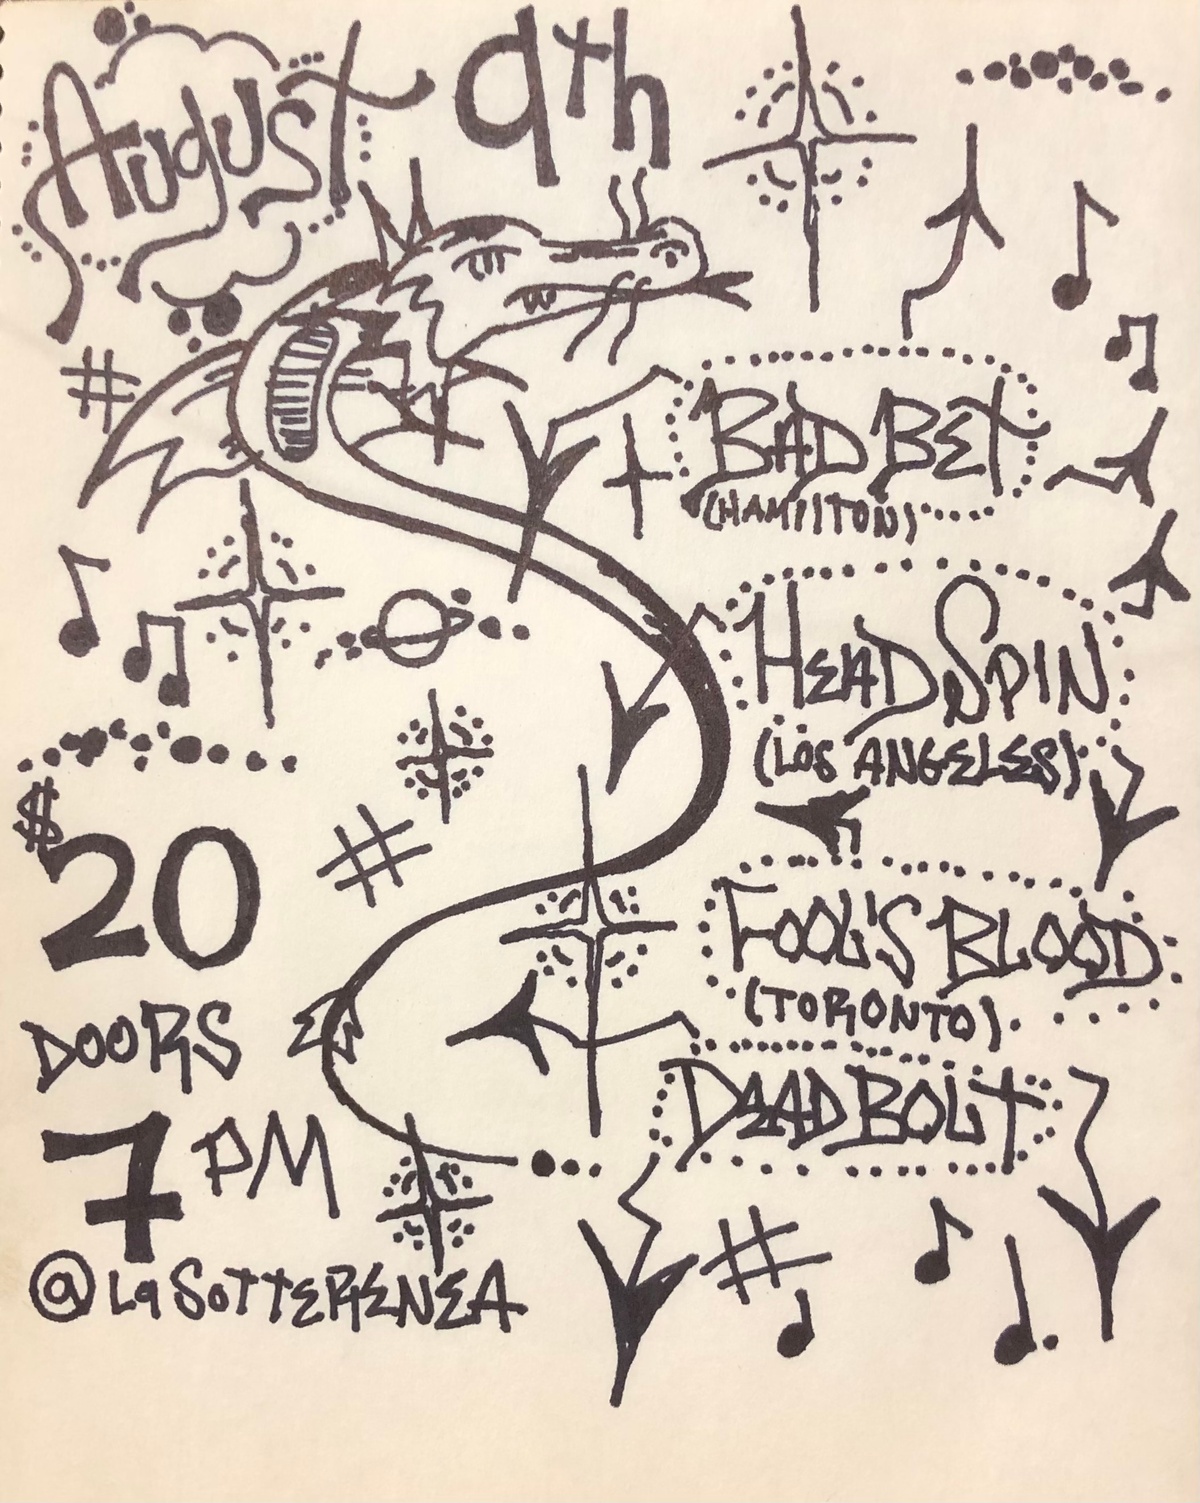 AUgUSt 9th
BAD BEt
(HAMIltON)
HEAD SPIN
(LOS ANGELES)
FOOL'S BLOOD
(TORONTO)
DEADBOLt
$20
DOORS
7PM
@ La SOttERENEA